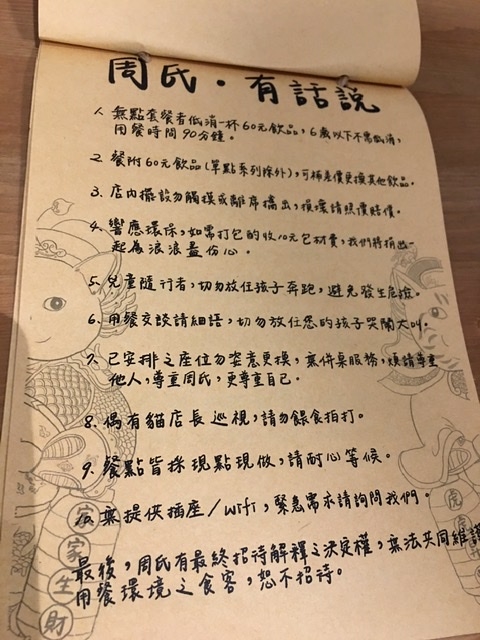 周氏・有話說
1. 無點套餐者低消一杯60元飲品，6歲以下不需低消，
用餐時間90分鐘。
2. 餐附60元飲品(單點系列除外)，可補差價更換其他飲品。
3. 店內擺設勿觸摸或離席攜出，損壞請照價賠償。
4. 響應環保，如需打包酌收10元包材費，我們將捐出一
起為浪浪盡份心。
5. 兒童隨行者，切勿放任孩子奔跑，避免發生危險。
6. 用餐交談請細語，切勿放任您的孩子哭鬧大叫。
7. 已安排之座位勿恣意更換，無併桌服務，煩請尊重
他人，尊重周氏，更尊重自己。
8. 偶有貓店長巡視，請勿餵食拍打。
9. 餐點皆採現點現做，請耐心等候。
10. 無提供插座/wifi，緊急需求請詢問我們。
最後，周氏有最終招待解釋之決定權，無法共同維護
用餐環境之食客，恕不招待。
家生財
虎